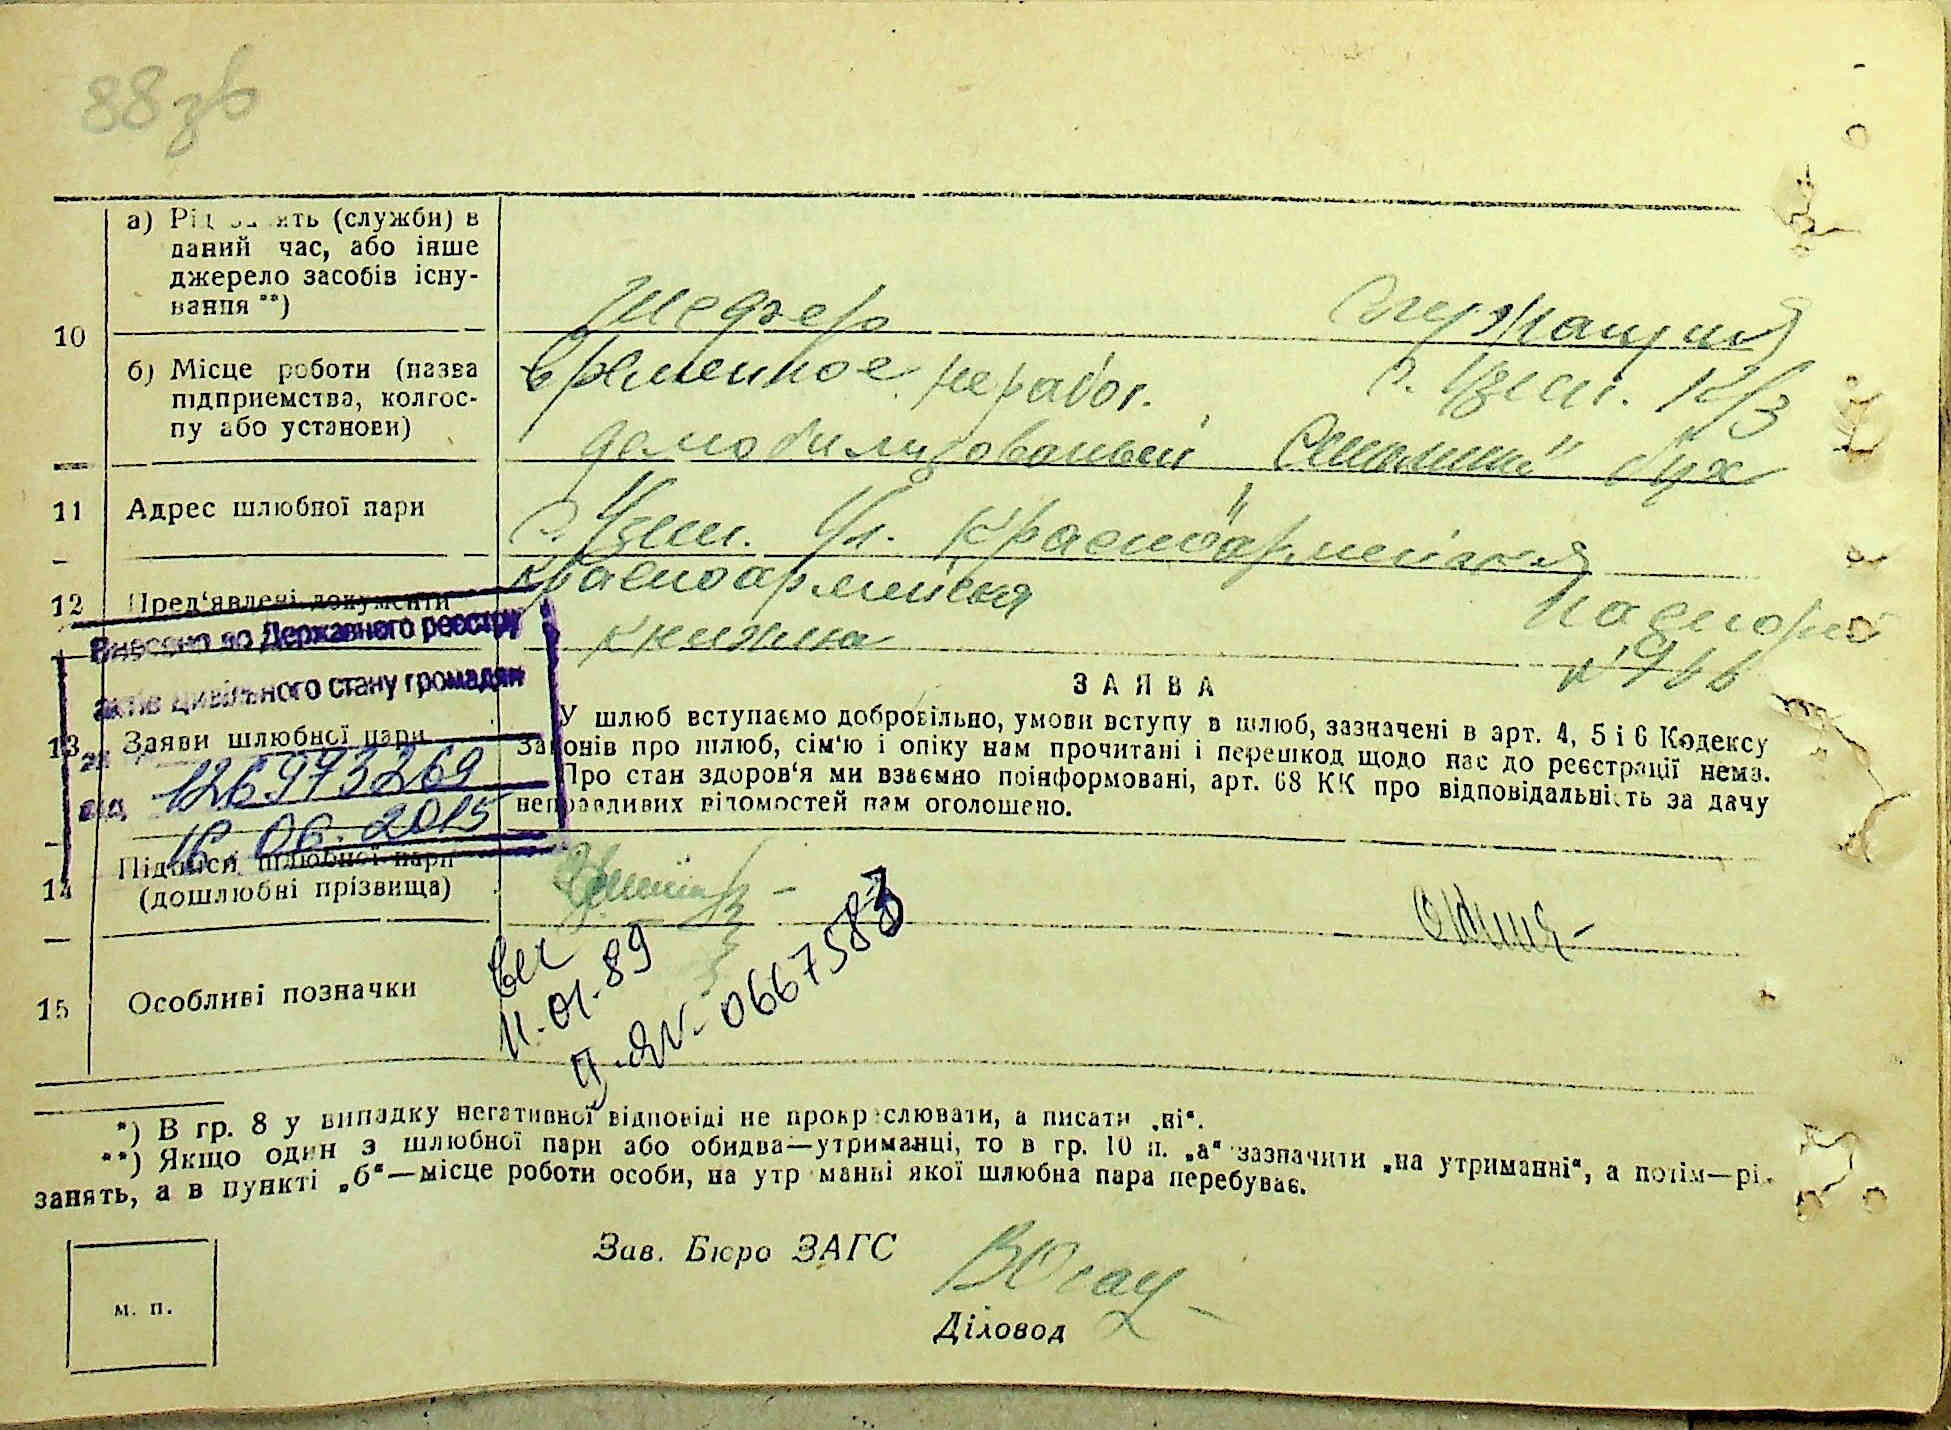 88зв
10
а) Рід занять (служби) в
даний час, або інше
джерело засобів існу-
вання **)
Шофер
Служащий
б) Місце роботи (назва
підприємства, колгос-
пу або установи)
временное не работ.
к/з
демобилизованый
бух
11
Адрес шлюбної пари
ул. Красноармейская
12
Пред'явлені документи
Красноармейская
книжка
паспорт
Внесено до Державного реєстру
актів цивільного стану громадян
за 126973269
від 16.06.2015
13
Заяви шлюбної пари
ЗАЯВА
У шлюб вступаємо добровільно, умови вступу в шлюб, зазначені в арт. 4, 5 і 6 Кодексу
Законів про шлюб, сім'ю і опіку нам прочитані і перешкод щодо нас до реєстрації нема.
Про стан здоров'я ми взаємно поінформовані, арт. 68 КК про відповідальність за дачу
неправдивих відомостей нам оголошено.
14
Підписи шлюбної пари
(дошлюбні прізвища)
15
Особливі позначки
11.01.89
*) В гр. 8 у випадку негативної відповіді не прокреслювати, а писати „ні“.
**) Якщо один з шлюбної пари або обидва—утриманці, то в гр. 10 п. „а“ зазначити „на утриманні“, а потім—рід
занять, а в пункті „б“—місце роботи особи, на утриманні якої шлюбна пара перебуває.
Зав. Бюро ЗАГС
Діловод
м. п.